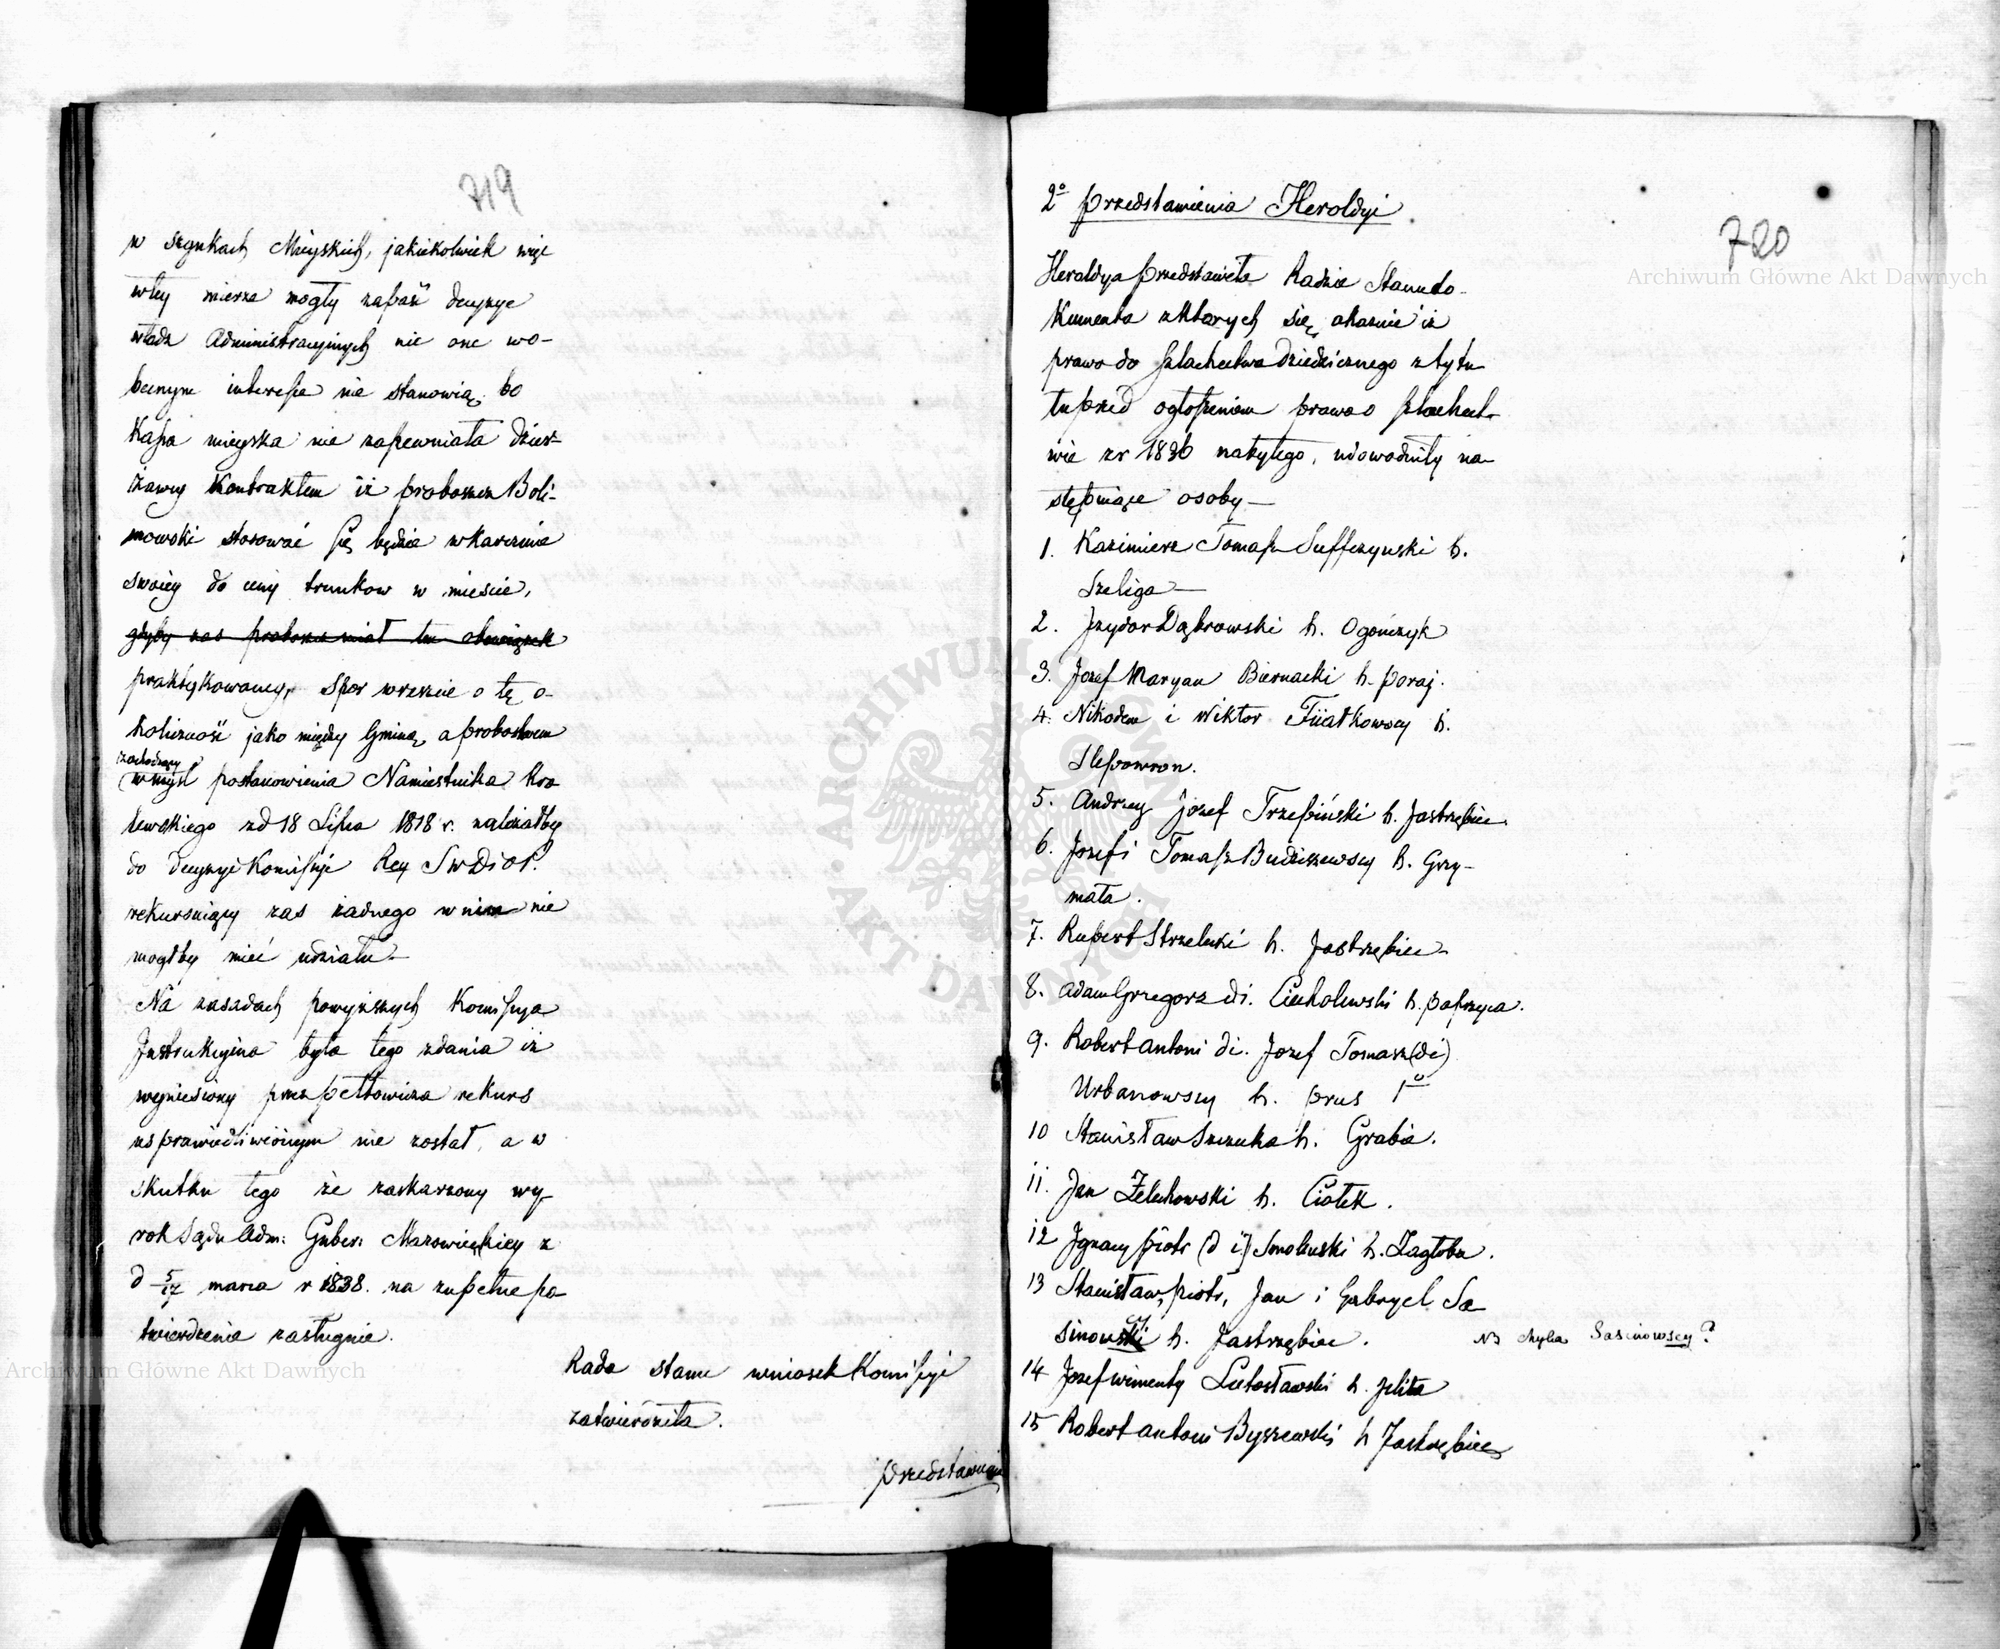 719
w szynkach Mieyskich, jakiekolwiek więc
wtey mierze mogły zapaść decyzye
władz Administracyinych nic one wo-
becnym interesie nie stanowią bo
Kassa mieyska nie zapewniała dzier-
żawcy Kontraktem iż proboszcz Boli-
mowski stosować się będzie w karczmie
swoiey do ceny trunkow w mieście,
gdyby zas proboszcz miał ten obowiązek
praktykowaney, spor wreszcie o tę o-
koliczność jako między Gminą a proboszczem
zachodzący
w myśl postanowienia Namiestnika Kro
lewskiego zd 18 Lipca 1818 r. należałby
do decyzyi Komissyi Rey S W D i O P.
rekursuiący zas żadnego w nim nie
mogłby mieć udziału
Na zasadach powyższych Komissya
Instrukcyina była tego zdania iż
wyniesiony przez Pełtowicza rekurs
usprawiedliwionym nie został, a w
skutku tego że zaskarżony wy-
rok Sądu Adm: Guber: Mazowieckiey z
d 5/17 marca r 1838. na zupełne po
twierdzenie zasługuie.
Rada stanu wniosek Komissyi
zatwierdziła.
przedstawienia
720
2o przedstawienia Heroldyi
Heroldya przedstawiła Radzie Stanu do-
kumenta z ktorych się okazuie iż
prawo do szlachectwa dziedzicznego z tytu
łu przed ogłoszeniem prawa o szlachect-
wie z r 1836 nabytego, udowodniły na-
stępuiące osoby—
1. Kazimierz Tomasz Suffczynski h.
Szeliga—
2. Jzydor Dąbrowski h. Ogończyk
3. Jozef Maryan Biernacki h. poraj.
4. Nikodem i Wiktor Fiiałkowscy h.
Slepowron.
5. Andrzey Jozef Trzebiński h. Jastrzębiec.
6. Jozef i Tomasz Budziszewscy h. Grzy-
mała.
7. Rupert Strzelecki h. Jastrzębiec
8. Adam Grzegorz di. Ciecholewski h. paprzyca.
9. Robert Antoni di. Jozef Tomasz (di)
Urbanowscy h. prus 1o
10 Stanisław Szczuka h. Grabie.
11. Jan Żelechowski h. Ciołek.
12 Jgnacy piotr (d i) Smoleński h. Zagłoba.
13 Stanisław, piotr, Jan i Gabryel Sa
sinowski h. Jastrzębiec. NB chyba Sasinowscy?
14 Jozef wincenty Lutosławski h. Jelita
15 Robert Antoni Byszewski h Jastrzębiec
Archiwum Główne Akt Dawnych
Archiwum Główne Akt Dawnych
ARCHIWUM GŁÓWNE AKT DAWNYCH